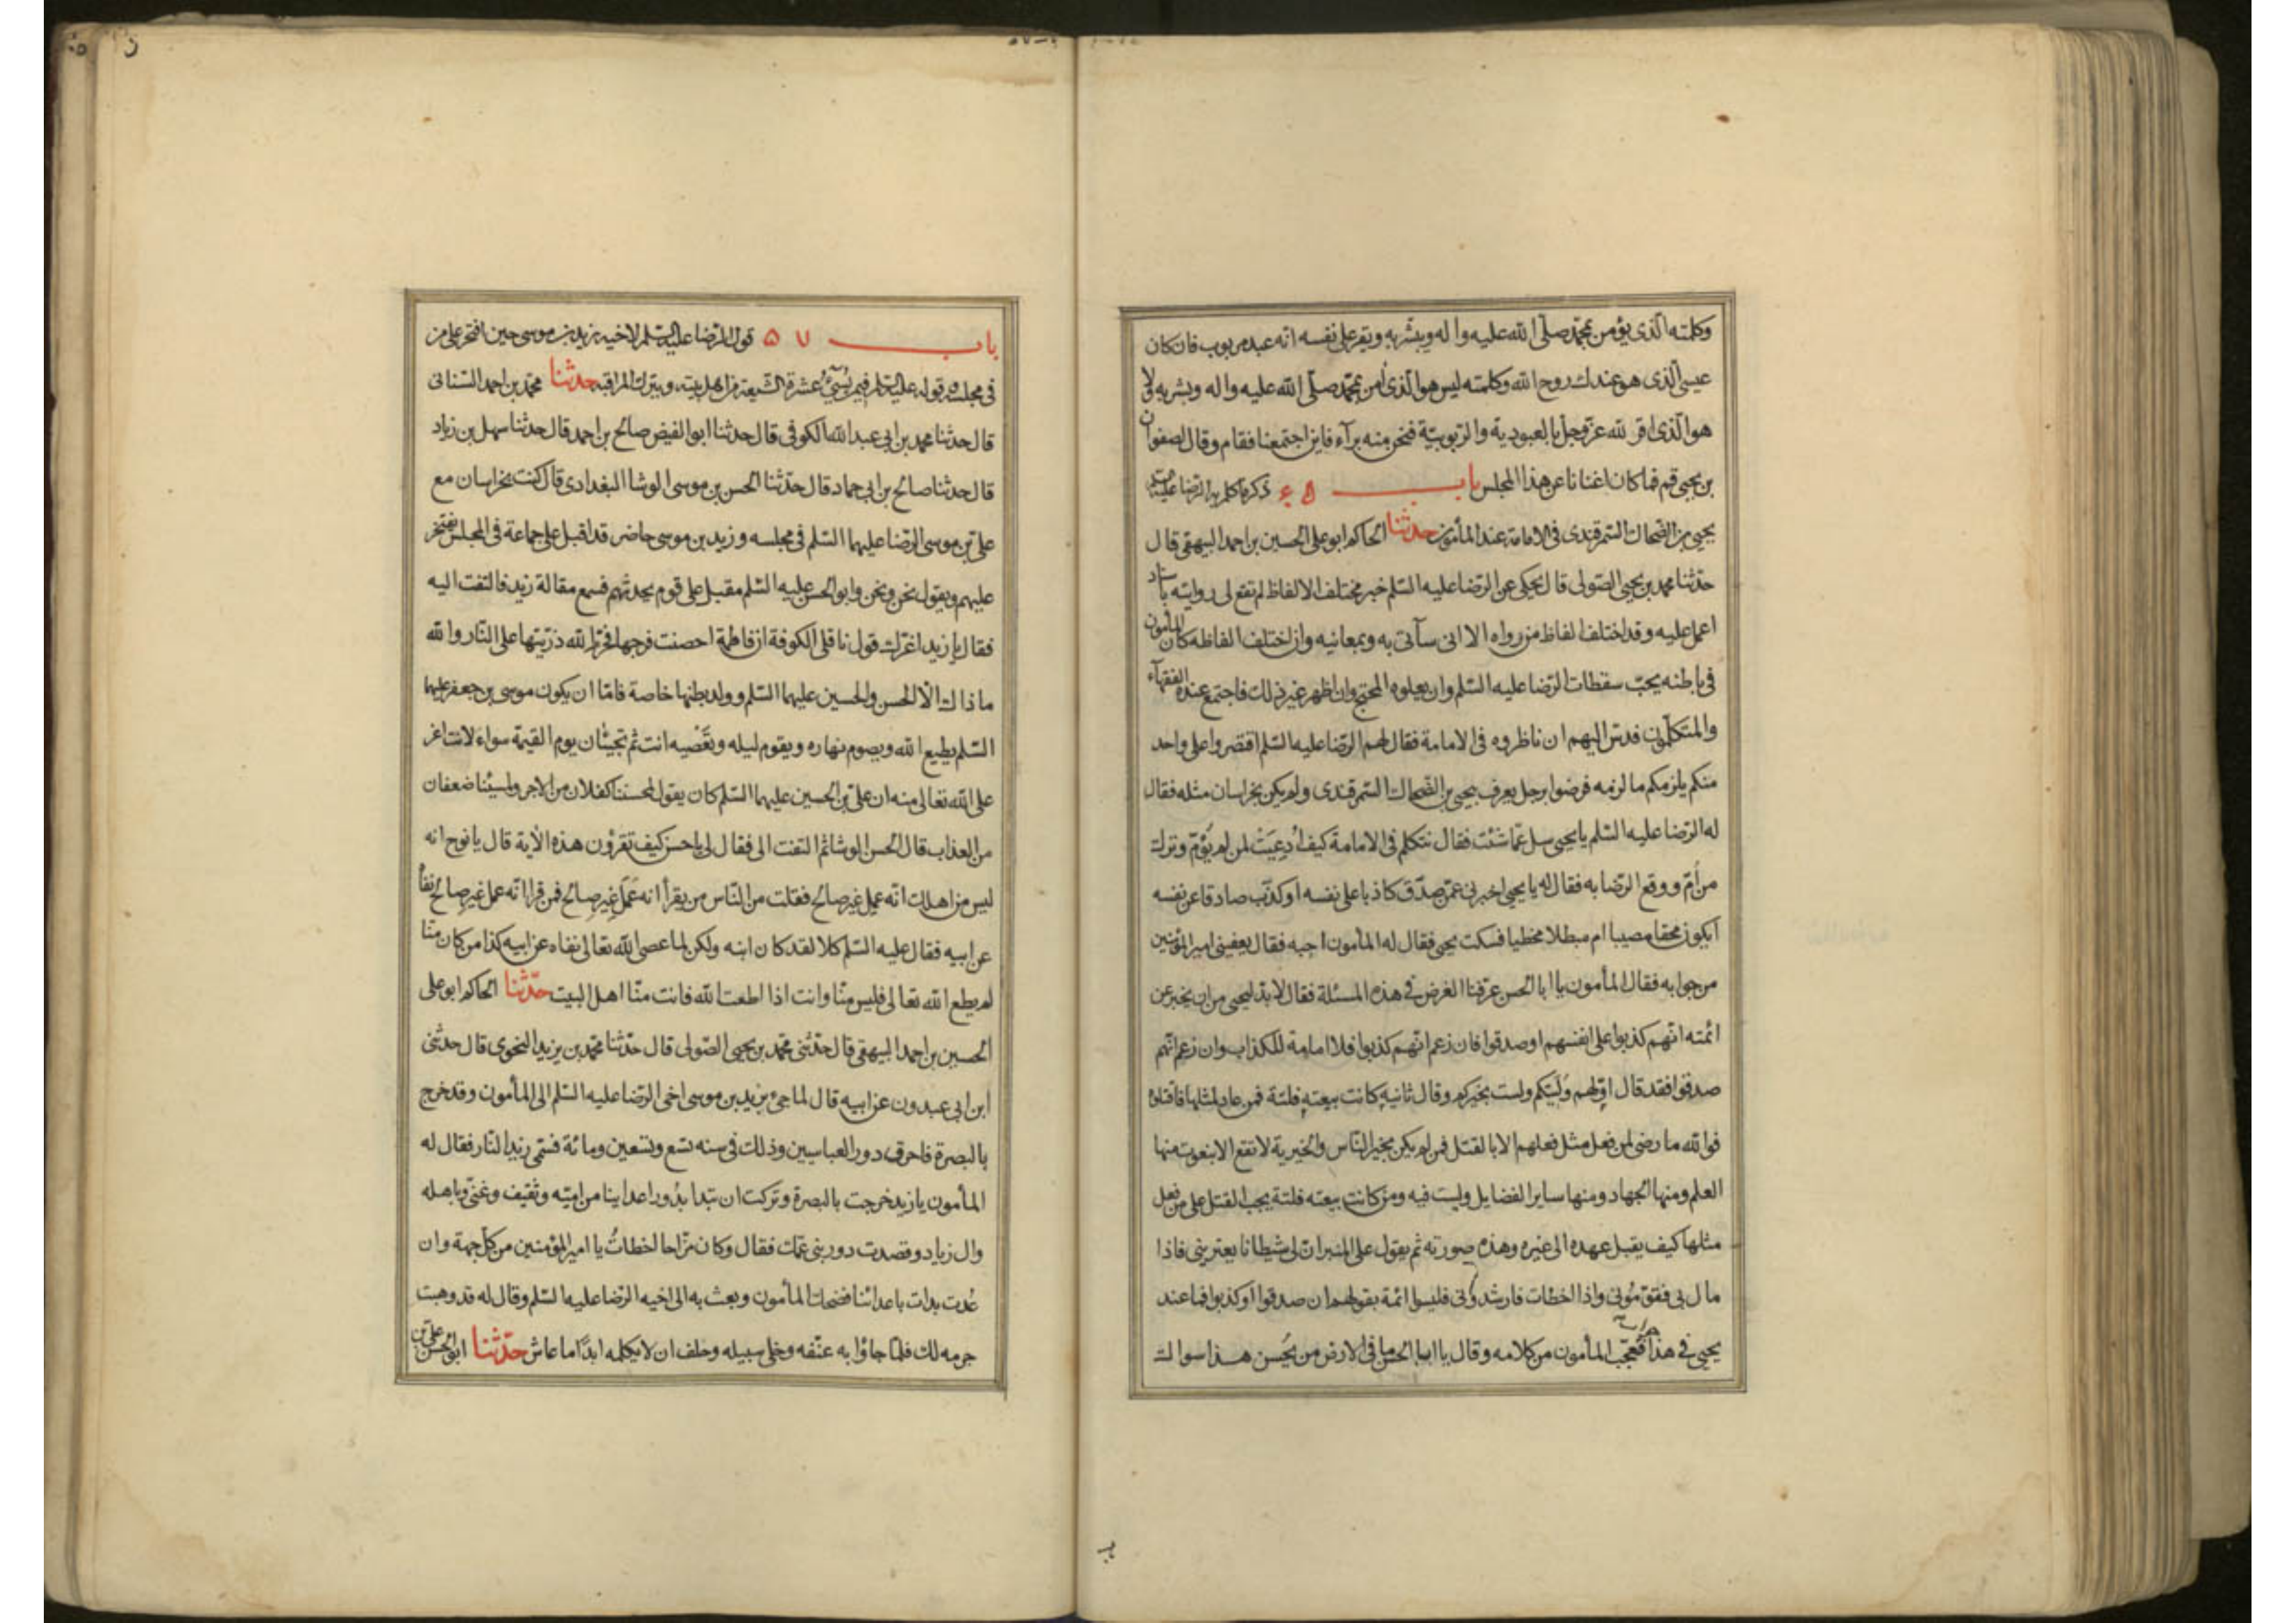 وكلمته الذى يؤمن بمحمد صلى الله عليه واله ويبشر به ويقر على نفسه انه عبد مربوب فان كان
عيسى الذى هو عندك روح الله وكلمته ليس هو الذى أمن بمحمد صلى الله عليه واله وبشر به ولا
هو الذى اقر لله عز وجل بالعبودية والربوبية فنحن منه برآء فاين اجتمعنا فقام وقال لصفوان
بن يحيى قم فما كان اغنانا عن هذا المجلس باب ٥٦ ذكر ما كلم به الرضا عليه السلم
يحيى بن الضحاك السمرقندى فى الامامة عند المأمون حدثنا الحاكم ابو على الحسين بن احمد البيهقى قال
حدثنا محمد بن يحيى الصولى قال يحكى عن الرضا عليه السلم خبر مختلف الالفاظ لم تقع لى روايته باسناد
اعمل عليه وقد اختلف الفاظ من رواه الا انى سآتى به وبمعانيه وان اختلف الفاظه كان المأمون
فى باطنه يحب سقطات الرضا عليه السلم وان يعلوه المحتج وان اظهر غير ذلك فاجتمع عنده الفقهآء
والمتكلمون فدس اليهم ان ناظروه فى الامامة فقال لهم الرضا عليه السلم اقتصروا على واحد
منكم يلزمكم ما لزمه فرضوا برجل يعرف بيحيى بن الضحاك السمرقندى ولم يكن بخراسان مثله فقال
له الرضا عليه السلم يا يحيى سل عما شئت فقال نتكلم فى الامامة كيف ادعيت لمن لم يؤم وترك
من أم ووقع الرضا به فقال له يا يحيى اخبرنى عمن صدق كاذبا على نفسه او كذب صادقا عن نفسه
أيكون محقا مصيبا ام مبطلا مخطيا فسكت يحيى فقال له المأمون اجبه فقال يعفينى امير المؤمنين
من جوابه فقال المأمون يا ابا الحسن عرفنا الغرض فى هذه المسئلة فقال لا بد ليحيى من ان يخبر عن
ائمته انهم كذبوا على انفسهم او صدقوا فان زعم انهم كذبوا فلا امامة للكذاب وان زعم انهم
صدقوا فقد قال اولهم وليتكم ولست بخيركم وقال ثانيه كانت بيعته فلتة فمن عاد لمثلها فاقتلوه
فوالله ما رضى لمن فعل مثل فعلهم الا بالقتل فمن لم يكن بخير الناس والخيرية لا تقع الا بنعوت منها
العلم ومنها الجهاد ومنها ساير الفضايل وليست فيه ومن كانت بيعته فلتة يجب القتل على من فعل
مثلها كيف يقبل عهده الى غيره وهذه صورته ثم يقول على المنبر ان لى شيطانا يعترينى فاذا
مال بى فقومونى واذا اخطات فارشدونى فليسوا ائمة بقولهم ان صدقوا او كذبوا فما عند
يحيى فى هذا جواب فعجب المأمون من كلامه وقال يا ابا الحسن ما فى الارض من يحسن هذا سواك
باب ٥٧ قول الرضا عليه السلم لاخيه زيد بن موسى حين افتخر على من
فى مجلسه وقوله عليه السلم فيمن يسيء عشرة الشيعة من اهل بيته ويترك المراقبة حدثنا محمد بن احمد السنانى
قال حدثنا محمد بن ابى عبد الله الكوفى قال حدثنا ابو الفيض صالح بن احمد قال حدثنا سهل بن زياد
قال حدثنا صالح بن ابى حماد قال حدثنا الحسن بن موسى الوشا البغدادى قال كنت بخراسان مع
على بن موسى الرضا عليهما السلم فى مجلسه وزيد بن موسى حاضر قد اقبل على جماعة فى المجلس يفتخر
عليهم ويقول نحن ونحن وابو الحسن عليه السلم مقبل على قوم يحدثهم فسمع مقالة زيد فالتفت اليه
فقال يا زيد اغرك قول ناقلى الكوفة ان فاطمة احصنت فرجها فحرم الله ذريتها على النار والله
ما ذاك الا للحسن والحسين عليهما السلم وولد بطنها خاصة فاما ان يكون موسى بن جعفر عليهما
السلم يطيع الله ويصوم نهاره ويقوم ليله وتعصيه انت ثم تجيئان يوم القيمة سواء لانت اعز
على الله تعالى منه ان على بن الحسين عليهما السلم كان يقول لمحسننا كفلان من الاجر ولمسيئنا ضعفان
من العذاب قال الحسن الوشا ثم التفت الى فقال لى يا حسن كيف تقرؤن هذه الأية قال يا نوح انه
ليس من اهلك انه عمل غير صالح فقلت من الناس من يقرأ انه عمل غير صالح فمن قرا انه عمل غير صالح نفاه
عن ابيه فقال عليه السلم كلا لقد كان ابنه ولكن لما عصى الله تعالى نفاه عن ابيه كذا من كان منا
لم يطع الله تعالى فليس منا وانت اذا اطعت الله فانت منا اهل البيت حدثنا الحاكم ابو على
الحسين بن احمد البيهقى قال حدثنى محمد بن يحيى الصولى قال حدثنا محمد بن يزيد النحوى قال حدثنى
ابن ابى عبدون عن ابيه قال لما جئ بزيد بن موسى اخى الرضا عليه السلم الى المأمون وقد خرج
بالبصرة فاحرق دور العباسيين وذلك فى سنه تسع وتسعين ومائة فسمى زيد النار فقال له
المأمون يا زيد خرجت بالبصرة وتركت ان تبدا بدور اعداينا من امية وثقيف وغنى وباهله
وال زياد وقصدت دور بنى عمك فقال وكان مزاحا اخطأت يا امير المؤمنين من كل جهة وان
عدت بدات باعدائنا فضحك المأمون وبعث به الى اخيه الرضا عليه السلم وقال له قد وهبت
جرمه لك فلما جاؤا به عنفه وخلى سبيله وحلف ان لا يكلمه ابدا ما عاش حدثنا ابو الحسن على بن